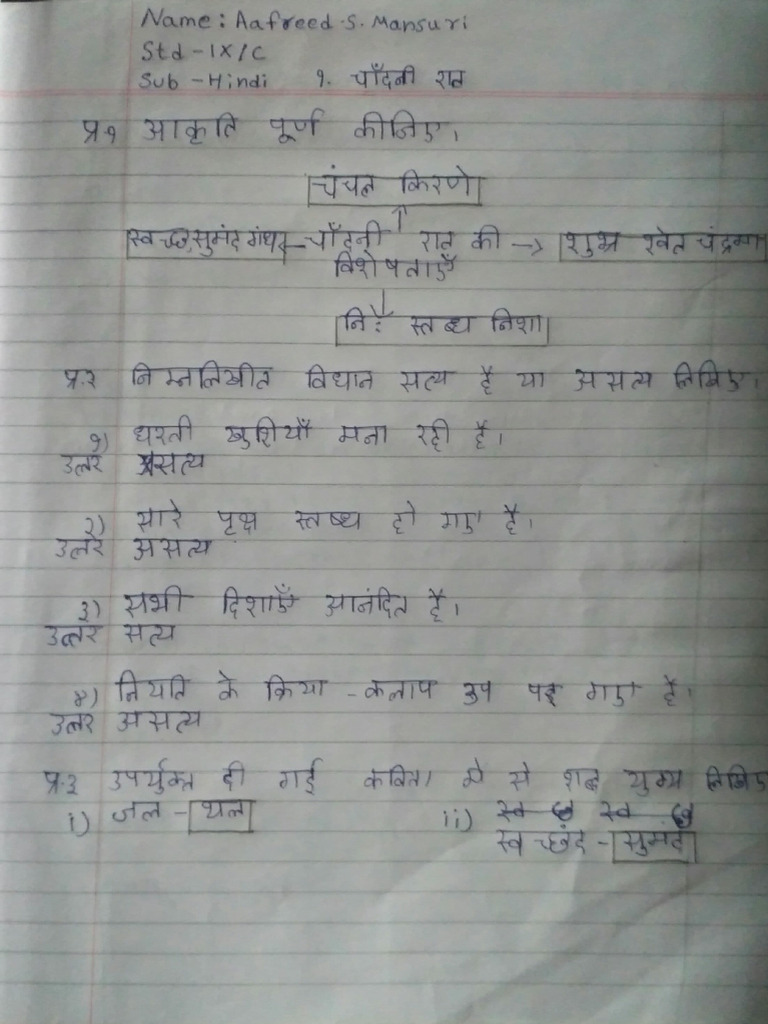 Name: Aafreed.S. Mansuri
Std - IX/C
Sub - Hindi १. चाँदनी रात
प्र.१ आकृति पूर्ण कीजिए।
चंचल किरणे
स्वच्छ,सुमंद गंधद - चाँदनी रात की → शुभ्र श्वेत चंद्रमा
विशेषताएँ
निः स्तब्ध निशा
प्र.२ निम्नलिखीत विधान सत्य है या असत्य लिखिए।
१) धरती खुशियाँ मना रही है।
उत्तर असत्य
२) सारे पृक्ष स्तब्ध हो गए है।
उत्तर असत्य
३) सभी दिशाएँ आनंदित है।
उत्तर सत्य
४) नियति के क्रिया - कलाप रुप पड़ गए है।
उत्तर असत्य
प्र.३ उपर्युक्त दी गई कविता मे से शब्द युग्म लिखिए
i) जल - थल ii)
स्वच्छंद - सुमंद